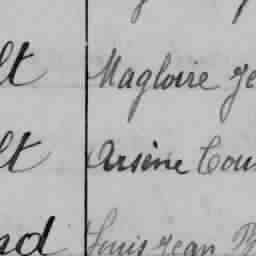 lt Magloire Je
lt Arsène Cou
nd Louis Jean